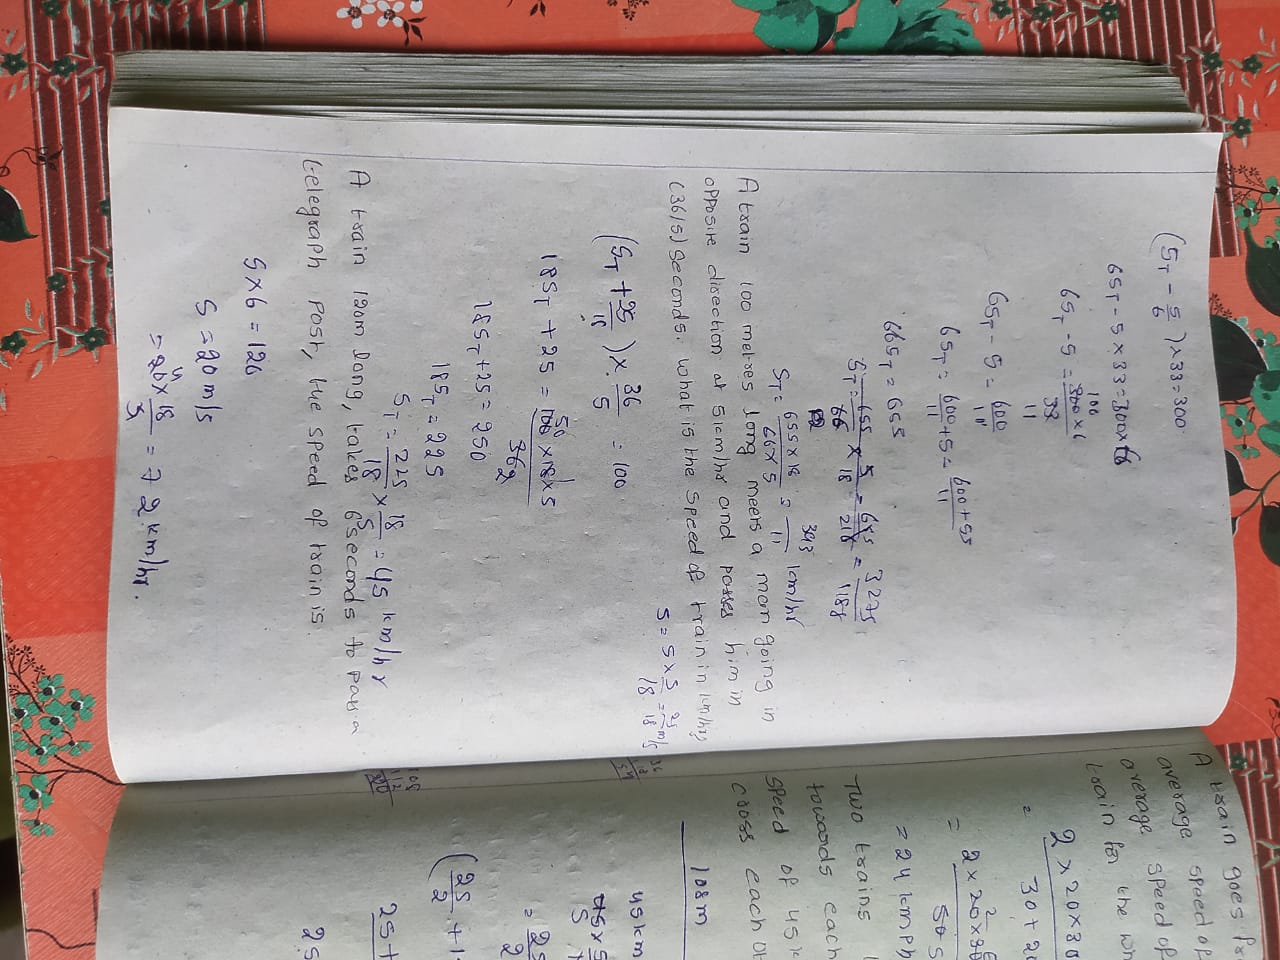 (S_T - 5/6) × 33 = 300
6S_T - 5 × 33 = 300 × 6
6S_T - 5 = 300 × 6 / 33
100
11
6S_T - 5 = 600/11
6S_T = 600/11 + 5 = 600 + 55 / 11
66S_T = 655
S_T = 655/66 × 5/18 = 655/216 = 3275/1188
S_T = 655 × 18 / 66 × 5 = /11 km/hr
A train 100 metres long meets a man going in
opposite direction at 5km/hr and passes him in
(36/5) seconds. what is the speed of train in km/hr,
S = 5 × 5/18 = 25/18 m/s
(S_T + 25/18) × 36/5 = 100
18S_T + 25 = 100 × 18 × 5 / 36
50
2
18S_T + 25 = 250
18S_T = 225
S_T = 225/18 × 18/5 = 45 km/hr
A train 120m long, takes 6 seconds to pass a
telegraph post, the speed of train is
S × 6 = 120
S = 20 m/s
= 20 × 18/5 = 72 km/hr.
4
A train goes
average speed of
average speed of
train for the wh
= 2 × 20 × 30
30 + 20
= 24 kmph
Two trains
towards each
speed of 45k
cross each ot
108m
45km
45 × 5
= 25
2
(25/2 + 1
25 +
25